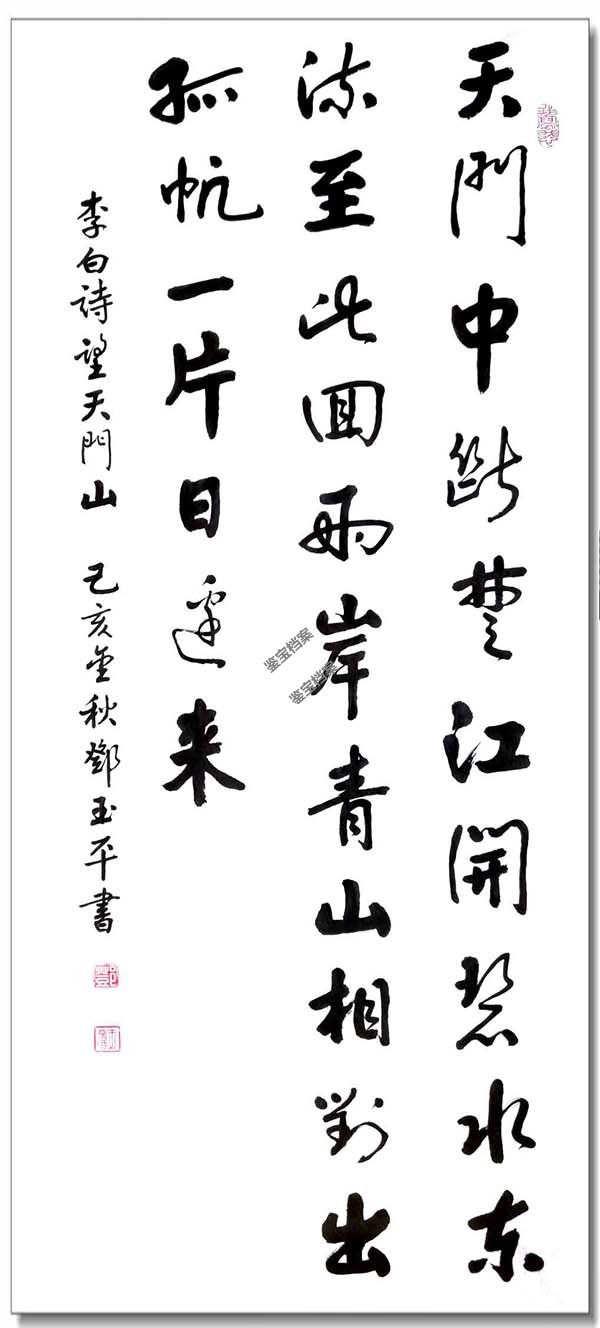 天門中斷楚江開碧水東
流至此回兩岸青山相對出
孤帆一片日邊来
李白詩望天門山 己亥金秋鄧玉平書
鉴宝档案
鉴宝档案